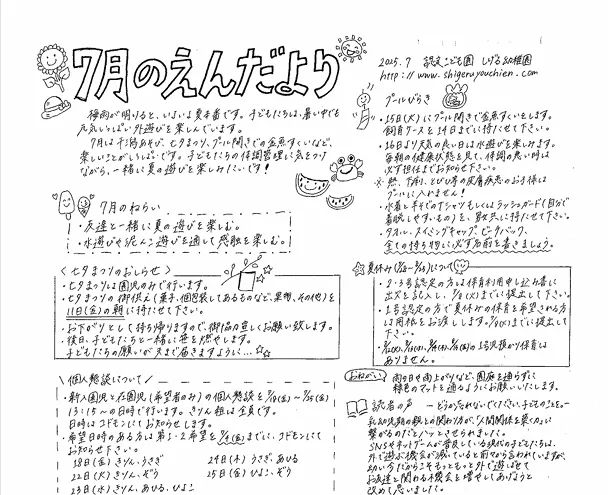 7月のえんだより
梅雨が明けると、いよいよ夏本番です。子どもたちは、暑い中でも
元気いっぱい外遊びを楽しんでいます。
7月は干潟あそび、七夕まつり、プール開きでの金魚すくいなど、
楽しいことがいっぱいです。子どもたちの体調管理に気をつけ
ながら、一緒に夏の遊びを楽しみたいです!
7月のねらい
・友達と一緒に夏の遊びを楽しむ。
・水遊びや泥んこ遊びを通して感触を楽しむ。
〈七夕まつりのおしらせ〉
・七夕まつりは園児のみで行います。
・七夕まつりの御供え(菓子、個包装してあるものなど、果物、その他)を
11日(金)の朝に持たせて下さい。
お下がりとして持ち帰りますので、御協力宜しくお願い致します。
後日、子どもたちと一緒に笹を燃やします。
子どもたちの願いが天まで届きますように…☆
〈個人懇談について〉
・新入園児と在園児(希望者のみ)の個人懇談を
13:15〜の日時で行います。きりん組は全員です。
日時はコドモンにてお知らせします。
・希望日時のある方は第1・2希望を(金)までに、コドモンにて
お知らせ下さい。
18日(金)きりん、うさぎ 24日(木)うさぎ、あひる
22日(火)きりん、ぞう 25日(金)ひよこ、ぞう
23日(水)きりん、あひる、ひよこ
2025.7 認定こども園 しげる幼稚園
http://www.shigeruyouchien.com
プールびらき
・15日(火)にプール開きで金魚すくいをします。
飼育ケースを14日までに持たせて下さい。
・16日より天気の良い日は水遊びを楽しみます。
毎朝の健康状態を見て、体調の悪い時は
必ず担任までお知らせ下さい。
※熱、下痢、とびひ等の皮膚疾患のお子様は
プールに入れません!
・水着と半そでのTシャツもしくはラッシュガード(自分で
着脱しやすいもの)を、
・タオル、スイミングキャップ、ビーチバック、
全ての持ち物に必ず名前を書きましょう。
☆夏休みについて
・2・3号認定の方は保育利用申し込み書に
出欠を記入し、(火)までに提出して下さい。
・1号認定の方で夏休みの保育を希望される方
は用紙をお渡しします。までに提出して
下さい。
の1号児預かり保育は
ありません。
おねがい
雨の日や雨上がりなど、園庭を通らずに
緑色のマットを通るようにお願いいたします。
読者の声 ―どうか忘れないでください、子どものことを。―
乳幼児期の親との関わり方が、人間関係を築く力に
繋がるのだとハッとさせられました。
SNSやネットゲームが普及している現代の子どもたちは、
外で遊ぶ機会が減っていると前から言われていますが、
幼い今だからこそもっともっと外で遊ばせて
お友達と関わる機会を増やしてあげなきゃと
改めて思いました。